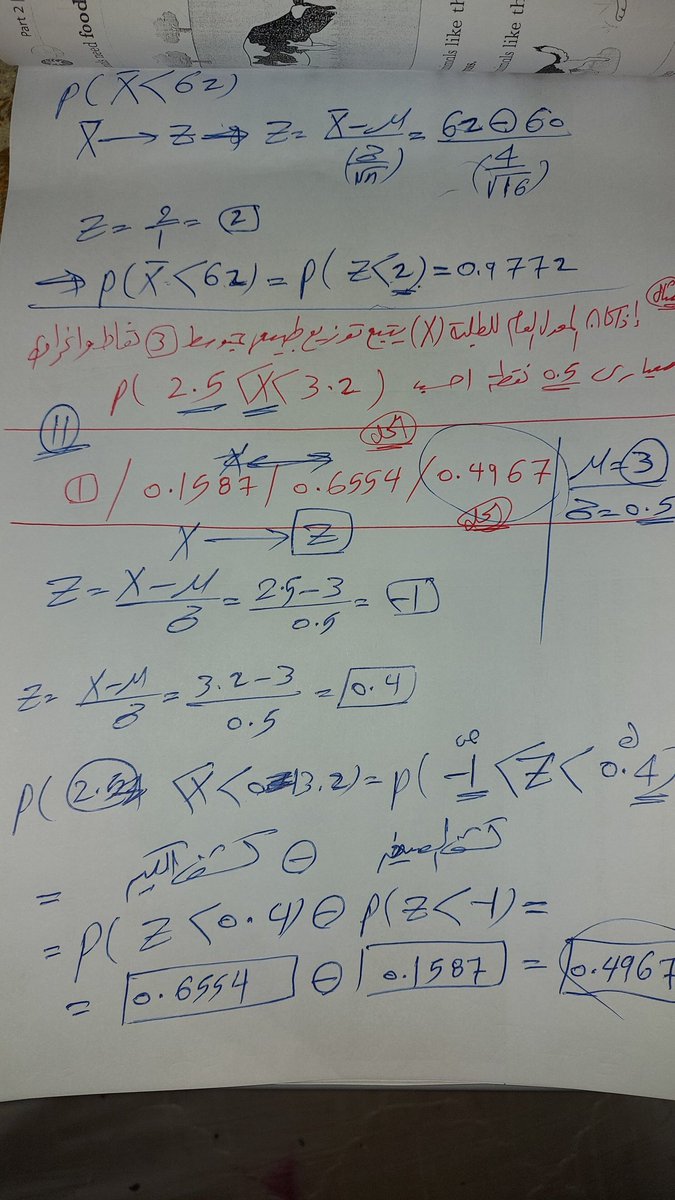 Part 2
food
nals like th
als like th
P(X̄<62)
X̄ → Z ⇒ Z = X̄-μ/(σ/√n) = 62⊖60/(4/√16)
Z = 2/1 = 2
⇒ P(X̄<62) = P(Z<2) = 0.9772
مثال
إذا كان المعدل العام للطلبة (X) يتبع توزيع طبيعي بمتوسط 3 نقاط وانحراف
معياري 0.5 نقطة احسب P(2.5<X<3.2)
11
1 / 0.1587 / 0.6554 / 0.4967
μ=3
σ=0.5
X → Z
Z = X-μ/σ = 2.5-3/0.5 = -1
Z = X-μ/σ = 3.2-3/0.5 = 0.4
P(2.5<X<3.2) = P(-1<Z<0.4)
= كشف الكبير ⊖ كشف الصغير
= P(Z<0.4) ⊖ P(Z<-1) =
= 0.6554 ⊖ 0.1587 = 0.4967